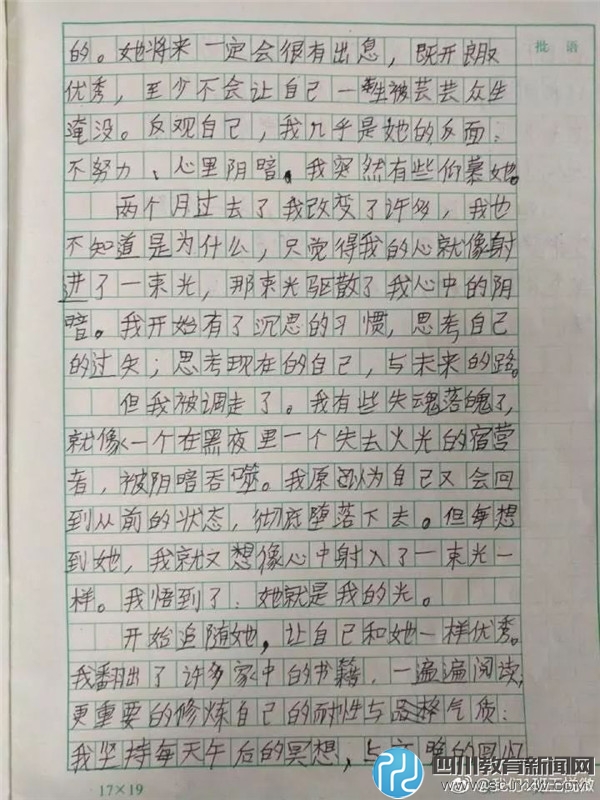 批语
的。她将来一定会很有出息，既开朗及
优秀，至少不会让自己一生被芸芸众生
淹没。反观自己，我几乎是她的反面：
不努力、心里阴暗。我突然有些仰慕她。
两个月过去了我改变了许多，我也
不知道是为什么，只觉得我的心就像射
进了一束光，那束光驱散了我心中的阴
暗。我开始有了沉思的习惯，思考自己
的过失；思考现在的自己，与未来的路。
但我被调走了。我有些失魂落魄了，
就像一个在黑夜里一个失去火光的宿营
者，被阴暗吞噬。我原以为自己又会回
到从前的状态，彻底堕落下去。但每想
到她，我就又想像心中射入了一束光一
样。我悟到了：她就是我的光。
开始追随她，让自己和她一样优秀。
我翻出了许多家中的书籍，一遍遍阅读，
更重要的修炼自己的耐性与气质：
我坚持每天午后的冥想，与晚的
17×19
四川教育新闻网
www.scjyxw.com